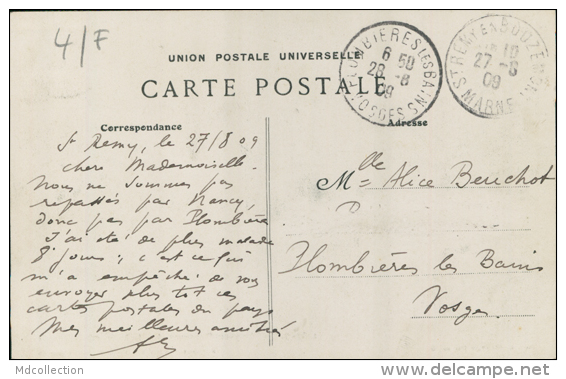 4/F
UNION POSTALE UNIVERSELLE
CARTE POSTALE
PLOMBIERES LES BAINS
6 50
28 -8
09
VOSGES
ST REMY EN BOUZEMONT
27 -8
09
MARNE
Correspondance
Adresse
St Remy, le 27/8 09
chere Mademoiselle.
Nous ne sommes pas
repassés par Nancy,
donc pas par Plombières
J'ai été de plus malade
8 jours; c'est ce qui
m'a empêché de vous
envoyer plus tôt ces
cartes postales du pays
Mes meilleures amitiés
Mlle Alice Beuchot
Plombières les Bains
Vosges
Mdcollection
www.delcampe.net